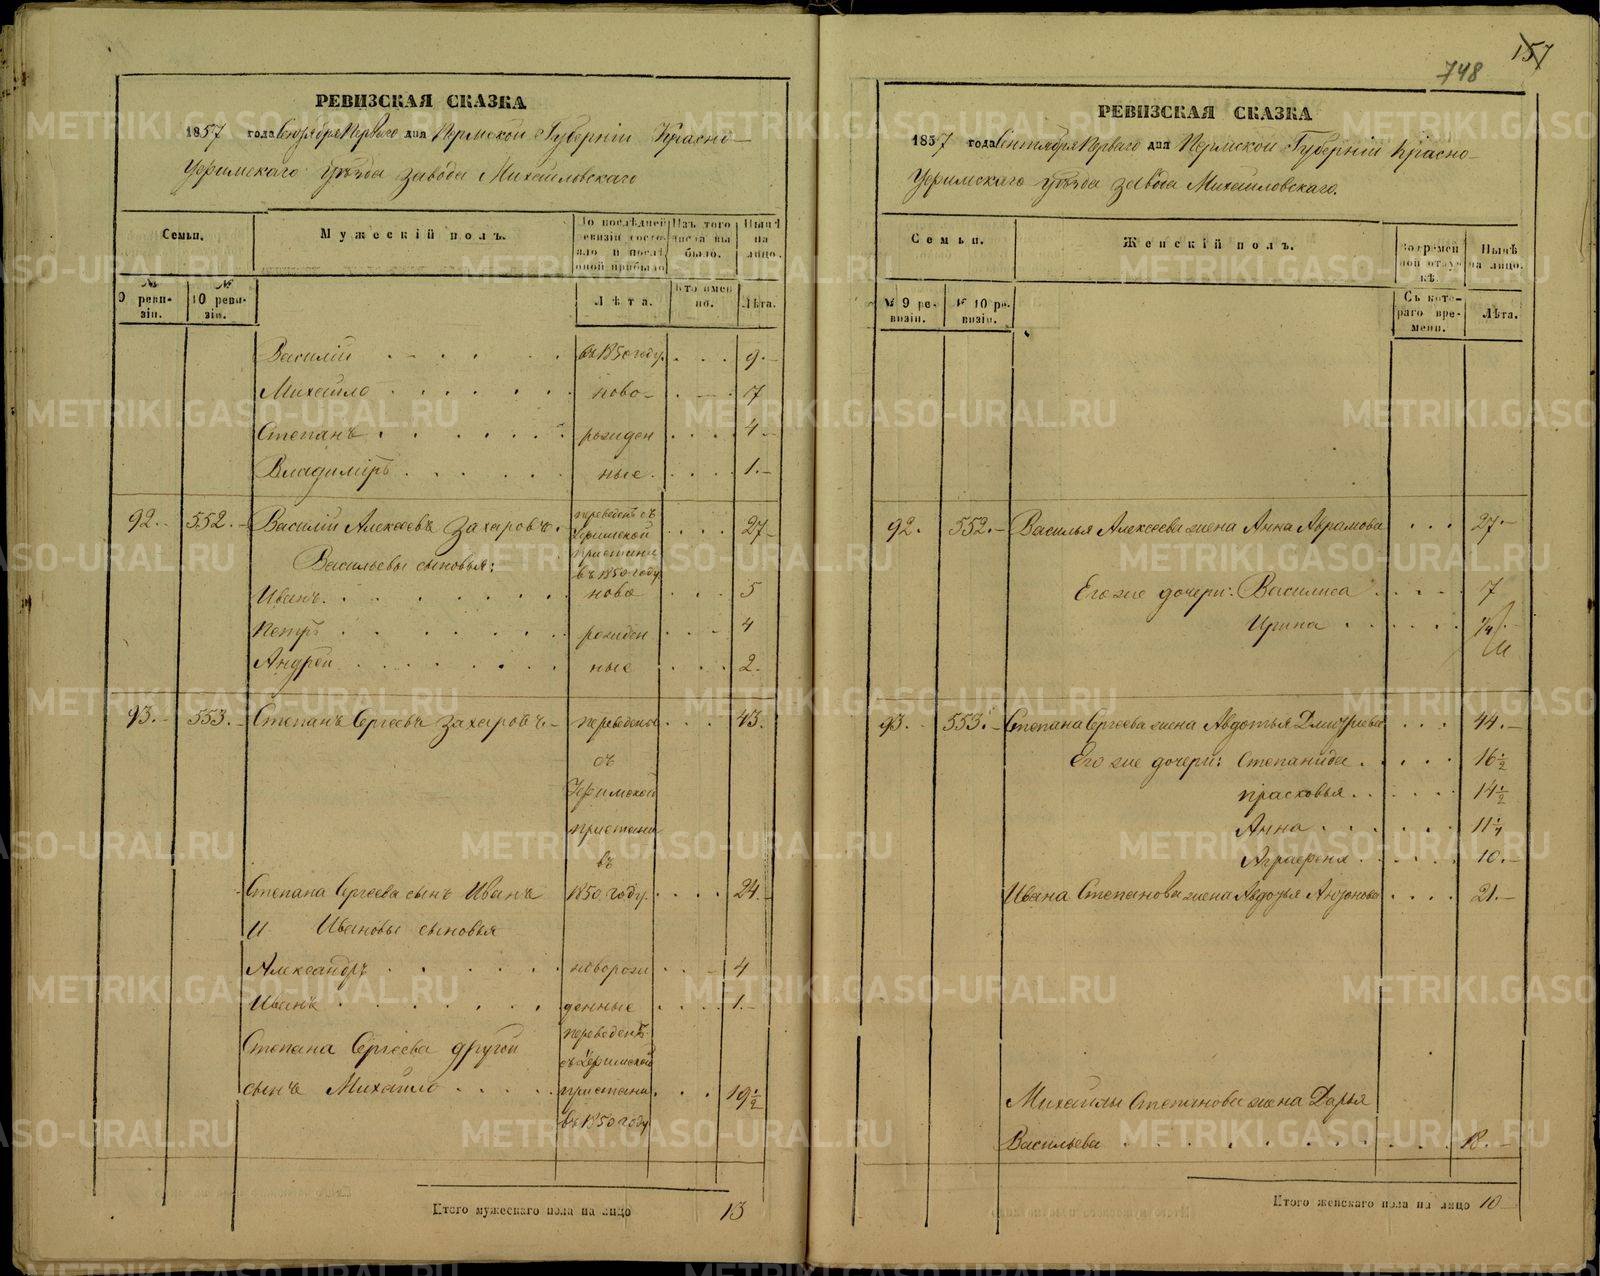 157
748
РЕВИЗСКАЯ СКАЗКА
1857 года Сентября Перваго дня Пермской Губерніи Красно-
Уфимскаго Уѣзда завода Михайловскаго
Семьи.
Мужескій полъ.
По послѣдней ревизіи состояло и послѣ оной прибыло
Изъ того числа выбыло.
Нынѣ на лицо.
№ 9 ревизіи.
№ 10 ревизіи.
Лѣта.
Кто именно.
Лѣта.
Василій въ 1850 году. 9.
Михайло ново- 7
Степанъ рожден 4
Владиміръ ные. 1.
92. 552. Василій Алексѣевъ Захаровъ. переведенъ съ Уфимской пристани въ 1850 году 27
Васильевы сыновья:
Иванъ. ново 5
Петръ рожден 4
Андрей ные 2.
93. 553. Степанъ Сергѣевъ Захаровъ. переведенъ 43.
съ
Уфимской
пристани
въ
Степана Сергѣева сынъ Иванъ 1850 году. 24.
И Ивановы сыновья
Александръ новорож 4
Иванъ денные 1.
Степана Сергѣева другой переведенъ съ Уфимской
сынъ Михайло пристани 19 1/2
въ 1850 году
Итого мужескаго пола на лицо 13
РЕВИЗСКАЯ СКАЗКА
1857 года Сентября Перваго дня Пермской Губерніи Красно-
Уфимскаго Уѣзда завода Михайловскаго.
Семьи.
Женскій полъ.
Во временной отлучкѣ.
Нынѣ на лицо.
№ 9 ревизіи.
№ 10 ревизіи.
Съ котораго времени.
Лѣта.
92. 552. Василья Алексѣева жена Анна Аврамова 27.
Его же дочери: Василиса 7
Ирина
93. 553. Степана Сергѣева жена Авдотья Дмитріева 44.
Его же дочери: Степанида 16 1/2
Прасковья 14 1/2
Анна 11 1/4
Аграфена 10.
Ивана Степанова жена Авдотья Антонова 21.
Михайлы Степанова жена Дарья
Васильева 18.
Итого женскаго пола на лицо 10
METRIKI.GASO-URAL.RU